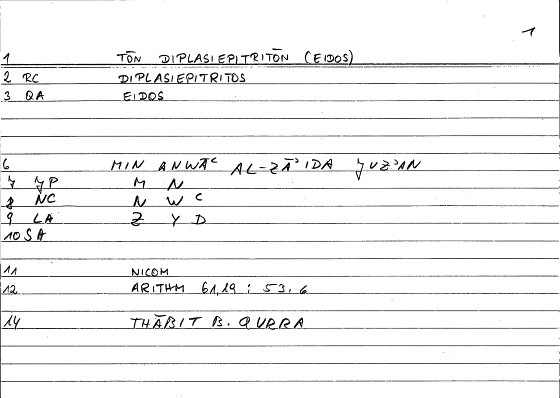 1
1 TŌN DIPLASIEPITRITŌN (EIDOS)
2 RC DIPLASIEPITRITOS
3 QA EIDOS
6 MIN ANWĀᶜ AL-ZĀʾIDA ʒUZʾAN
7 ʒP M N
8 NC N W ᶜ
9 LA Z Y D
10 SA
11 NICOM
12 ARITHM 61,19 : 53.6
14 THĀBIT B. QURRA